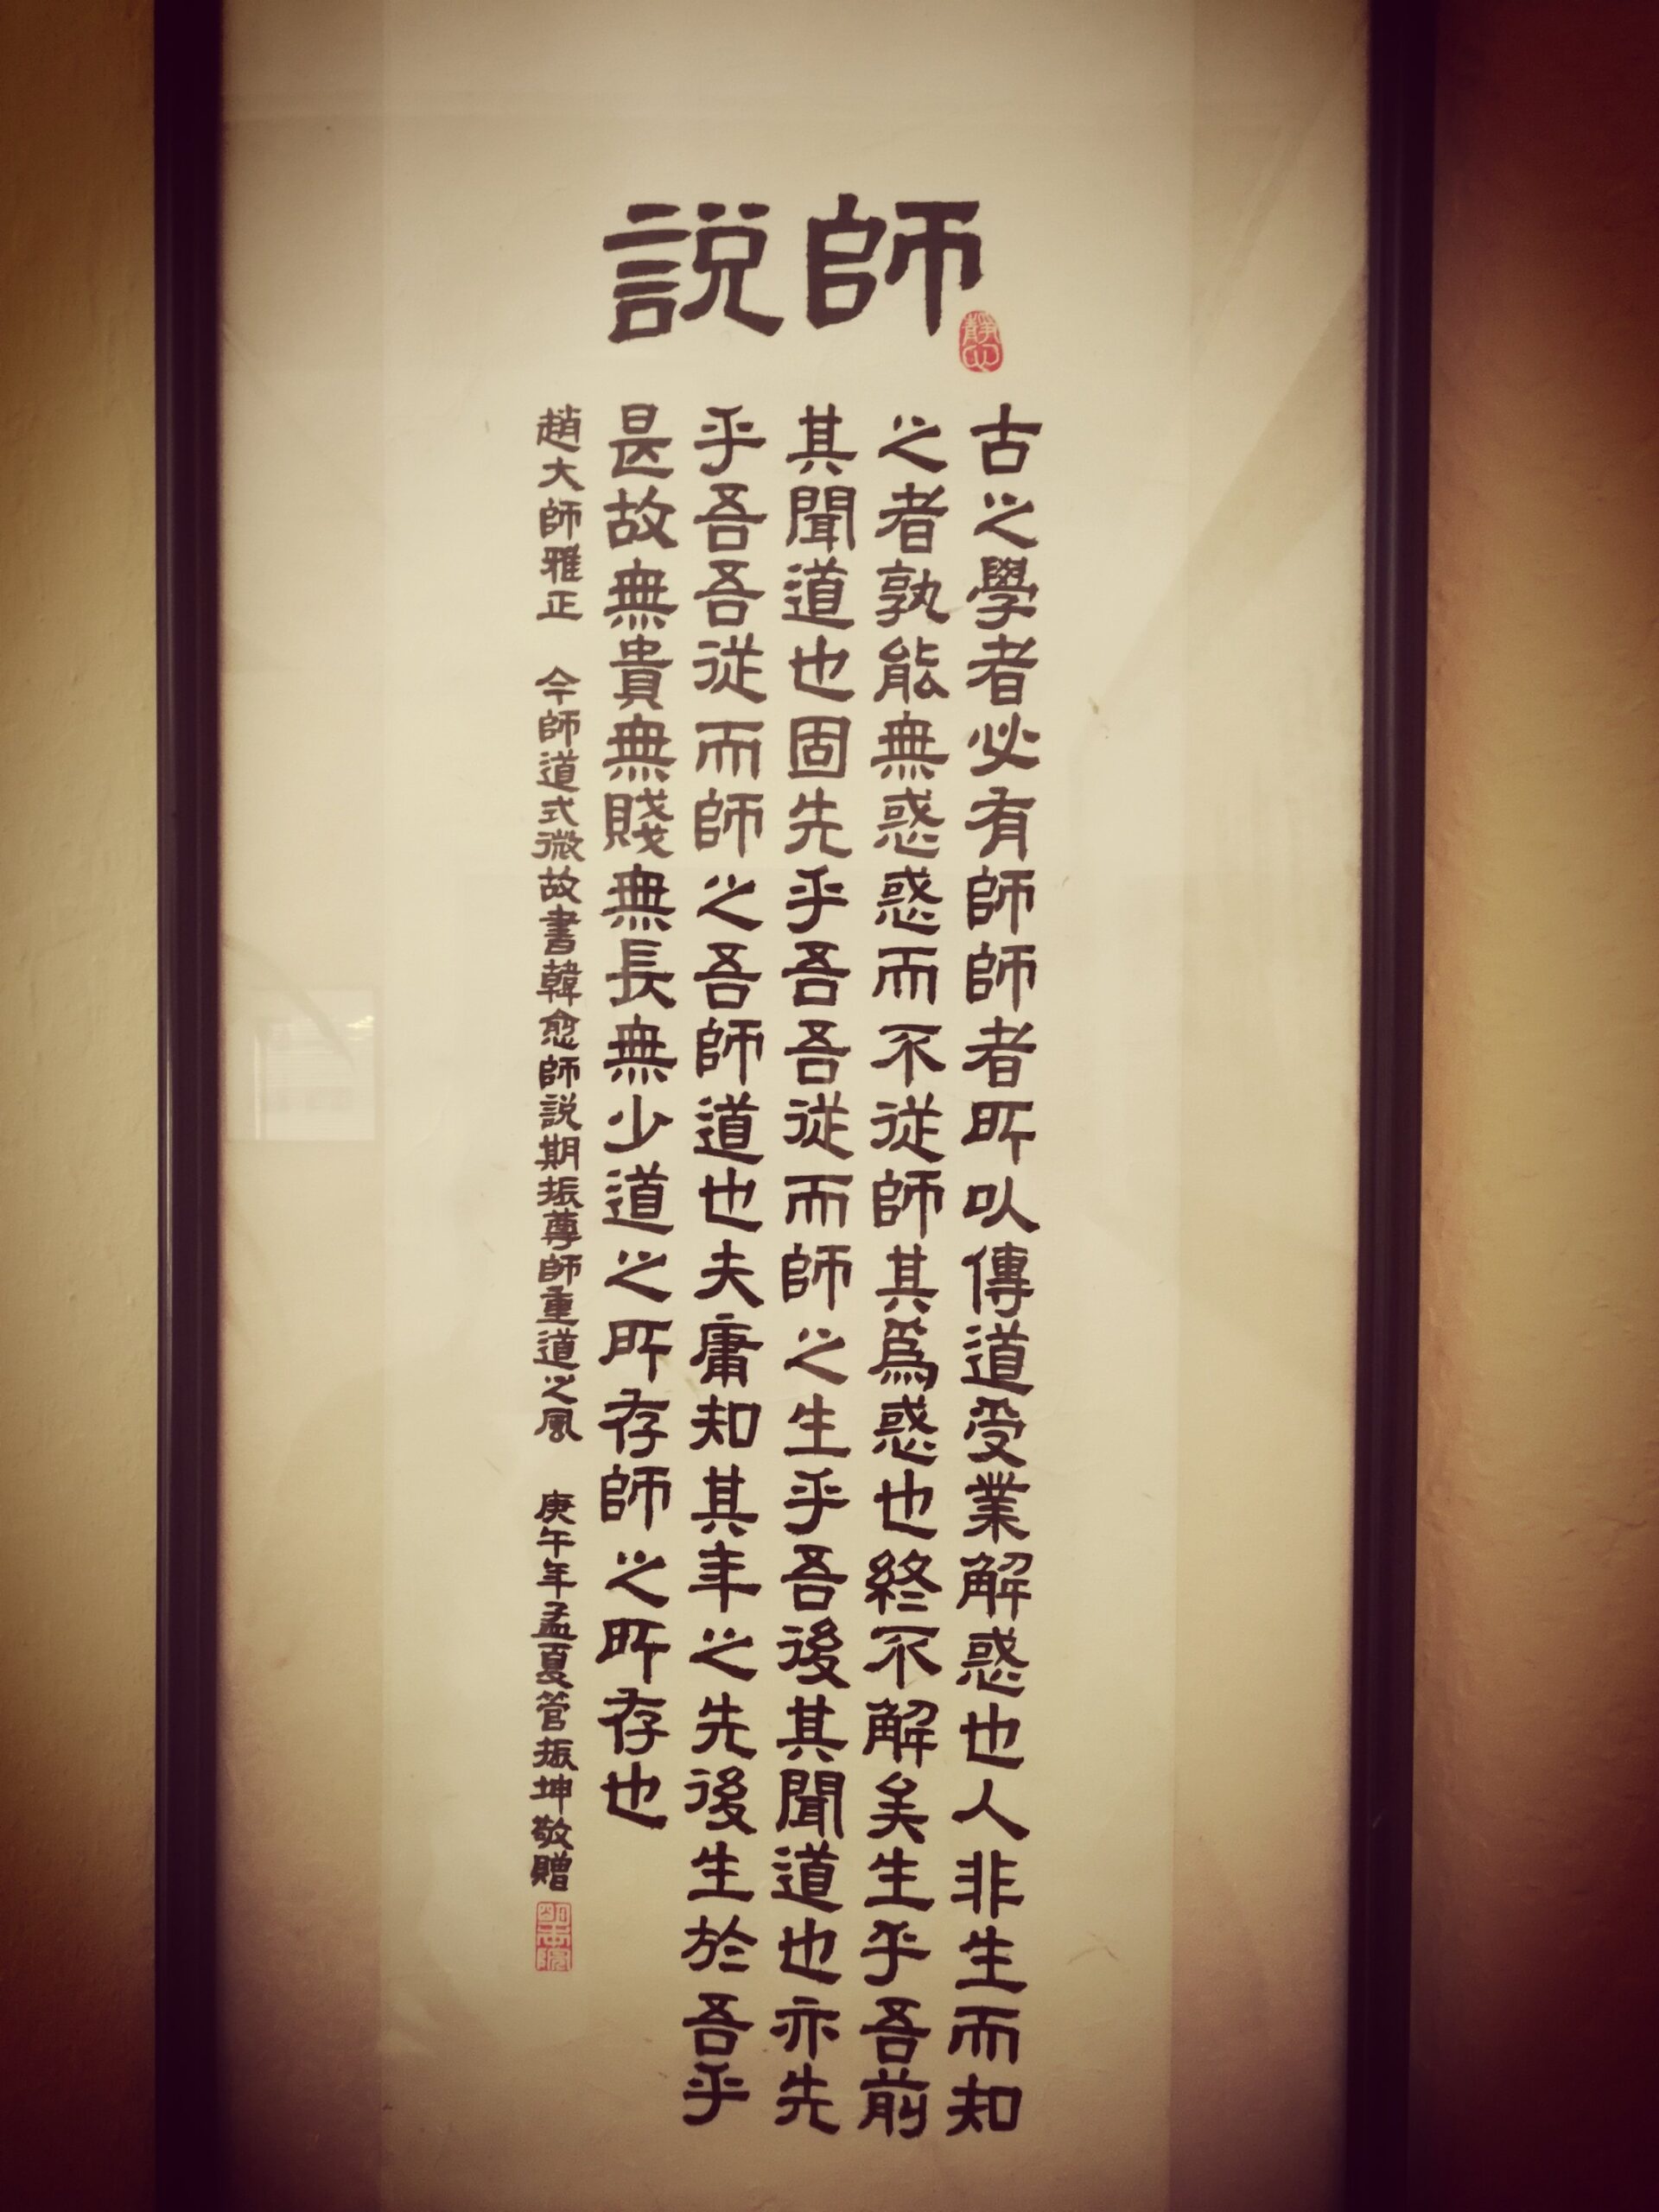 師說
靜心
古之學者必有師師者所以傳道受業解惑也人非生而知
之者孰能無惑惑而不從師其爲惑也終不解矣生乎吾前
其聞道也固先乎吾吾從而師之生乎吾後其聞道也亦先
乎吾吾從而師之吾師道也夫庸知其年之先後生於吾乎
是故無貴無賤無長無少道之所存師之所存也
趙大師雅正 今師道式微故書韓愈師說期振尊師重道之風 庚午年孟夏管振坤敬贈